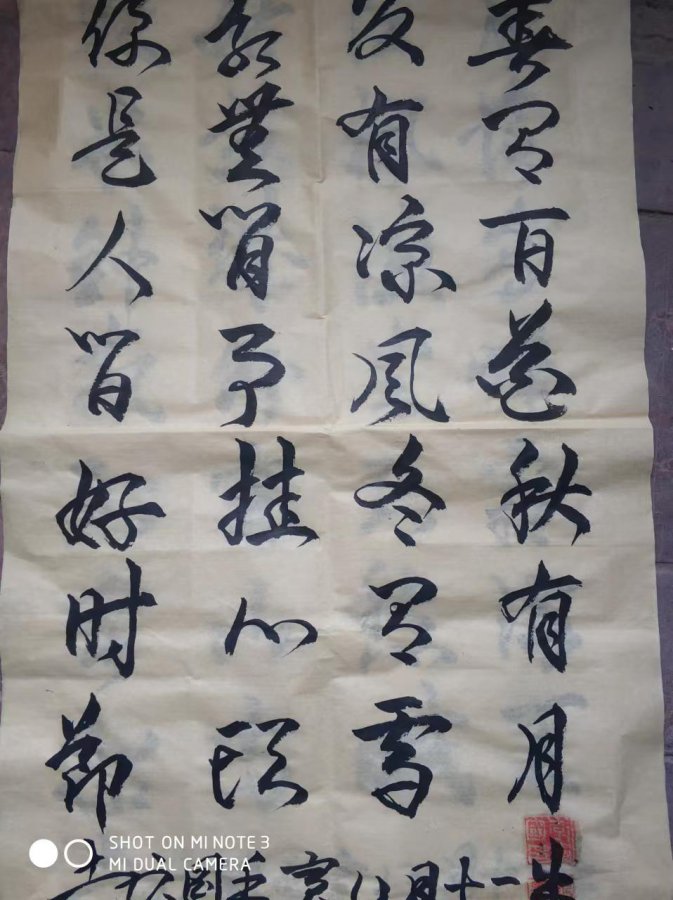 春有百花秋有月
夏有凉风冬有雪
若無閒事挂心頭
便是人間好时節
SHOT ON MI NOTE 3
MI DUAL CAMERA